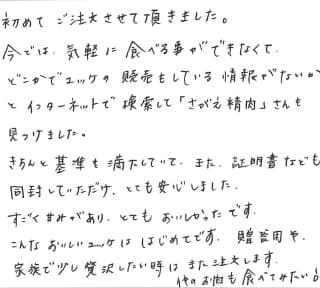 初めて ご注文させて頂きました。
今では、気軽に食べる事ができなくて、
どこかでユッケの販売をしている情報がないか
と インターネットで検索して「さがえ精肉」さんを
見つけました。
きちんと基準も満たしていて、また、証明書なども
同封していただけ、とても安心しました。
すごく甘みがあり、とても おいしかったです。
こんな おいしいユッケは はじめてです。贈答用や、
家族で少し贅沢したい時は また注文します。
他のお肉も食べてみたい!